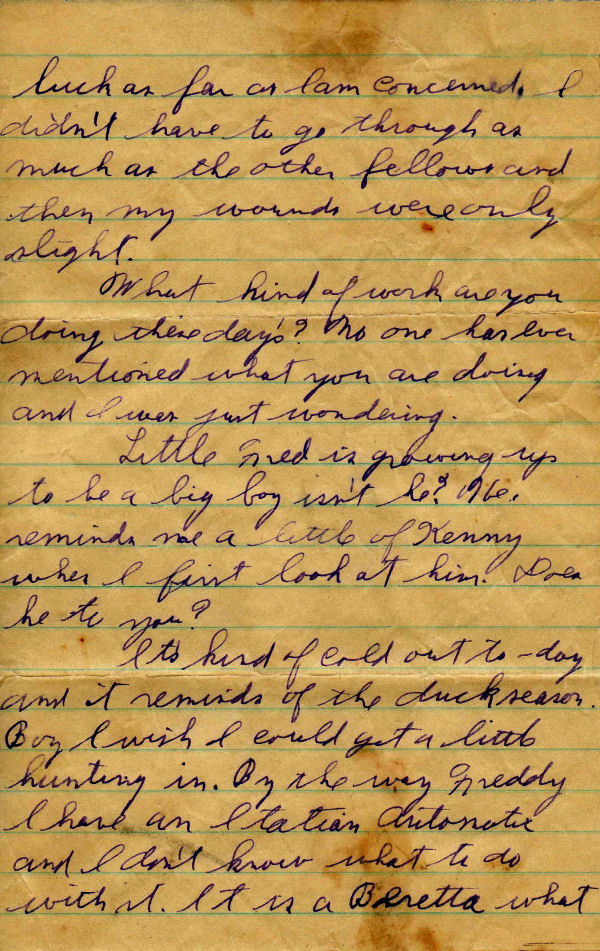 luck as far as I am concerned. I
didn't have to go through as
much as the other fellows and
then my wounds were only
slight.
What kind of work are you
doing these day's? No one has ever
mentioned what you are doing
and I was just wondering.
Little Fred is growing up
to be a big boy isn't he? He.
reminds me a little of Kenny
when I first look at him. Does
he to you?
It's kind of cold out to-day
and it reminds of the duck season.
Boy I wish I could get a little
hunting in. By the way Freddy
I have an Italian Automatic
and I don't know what to do
with it. It is a Beretta what